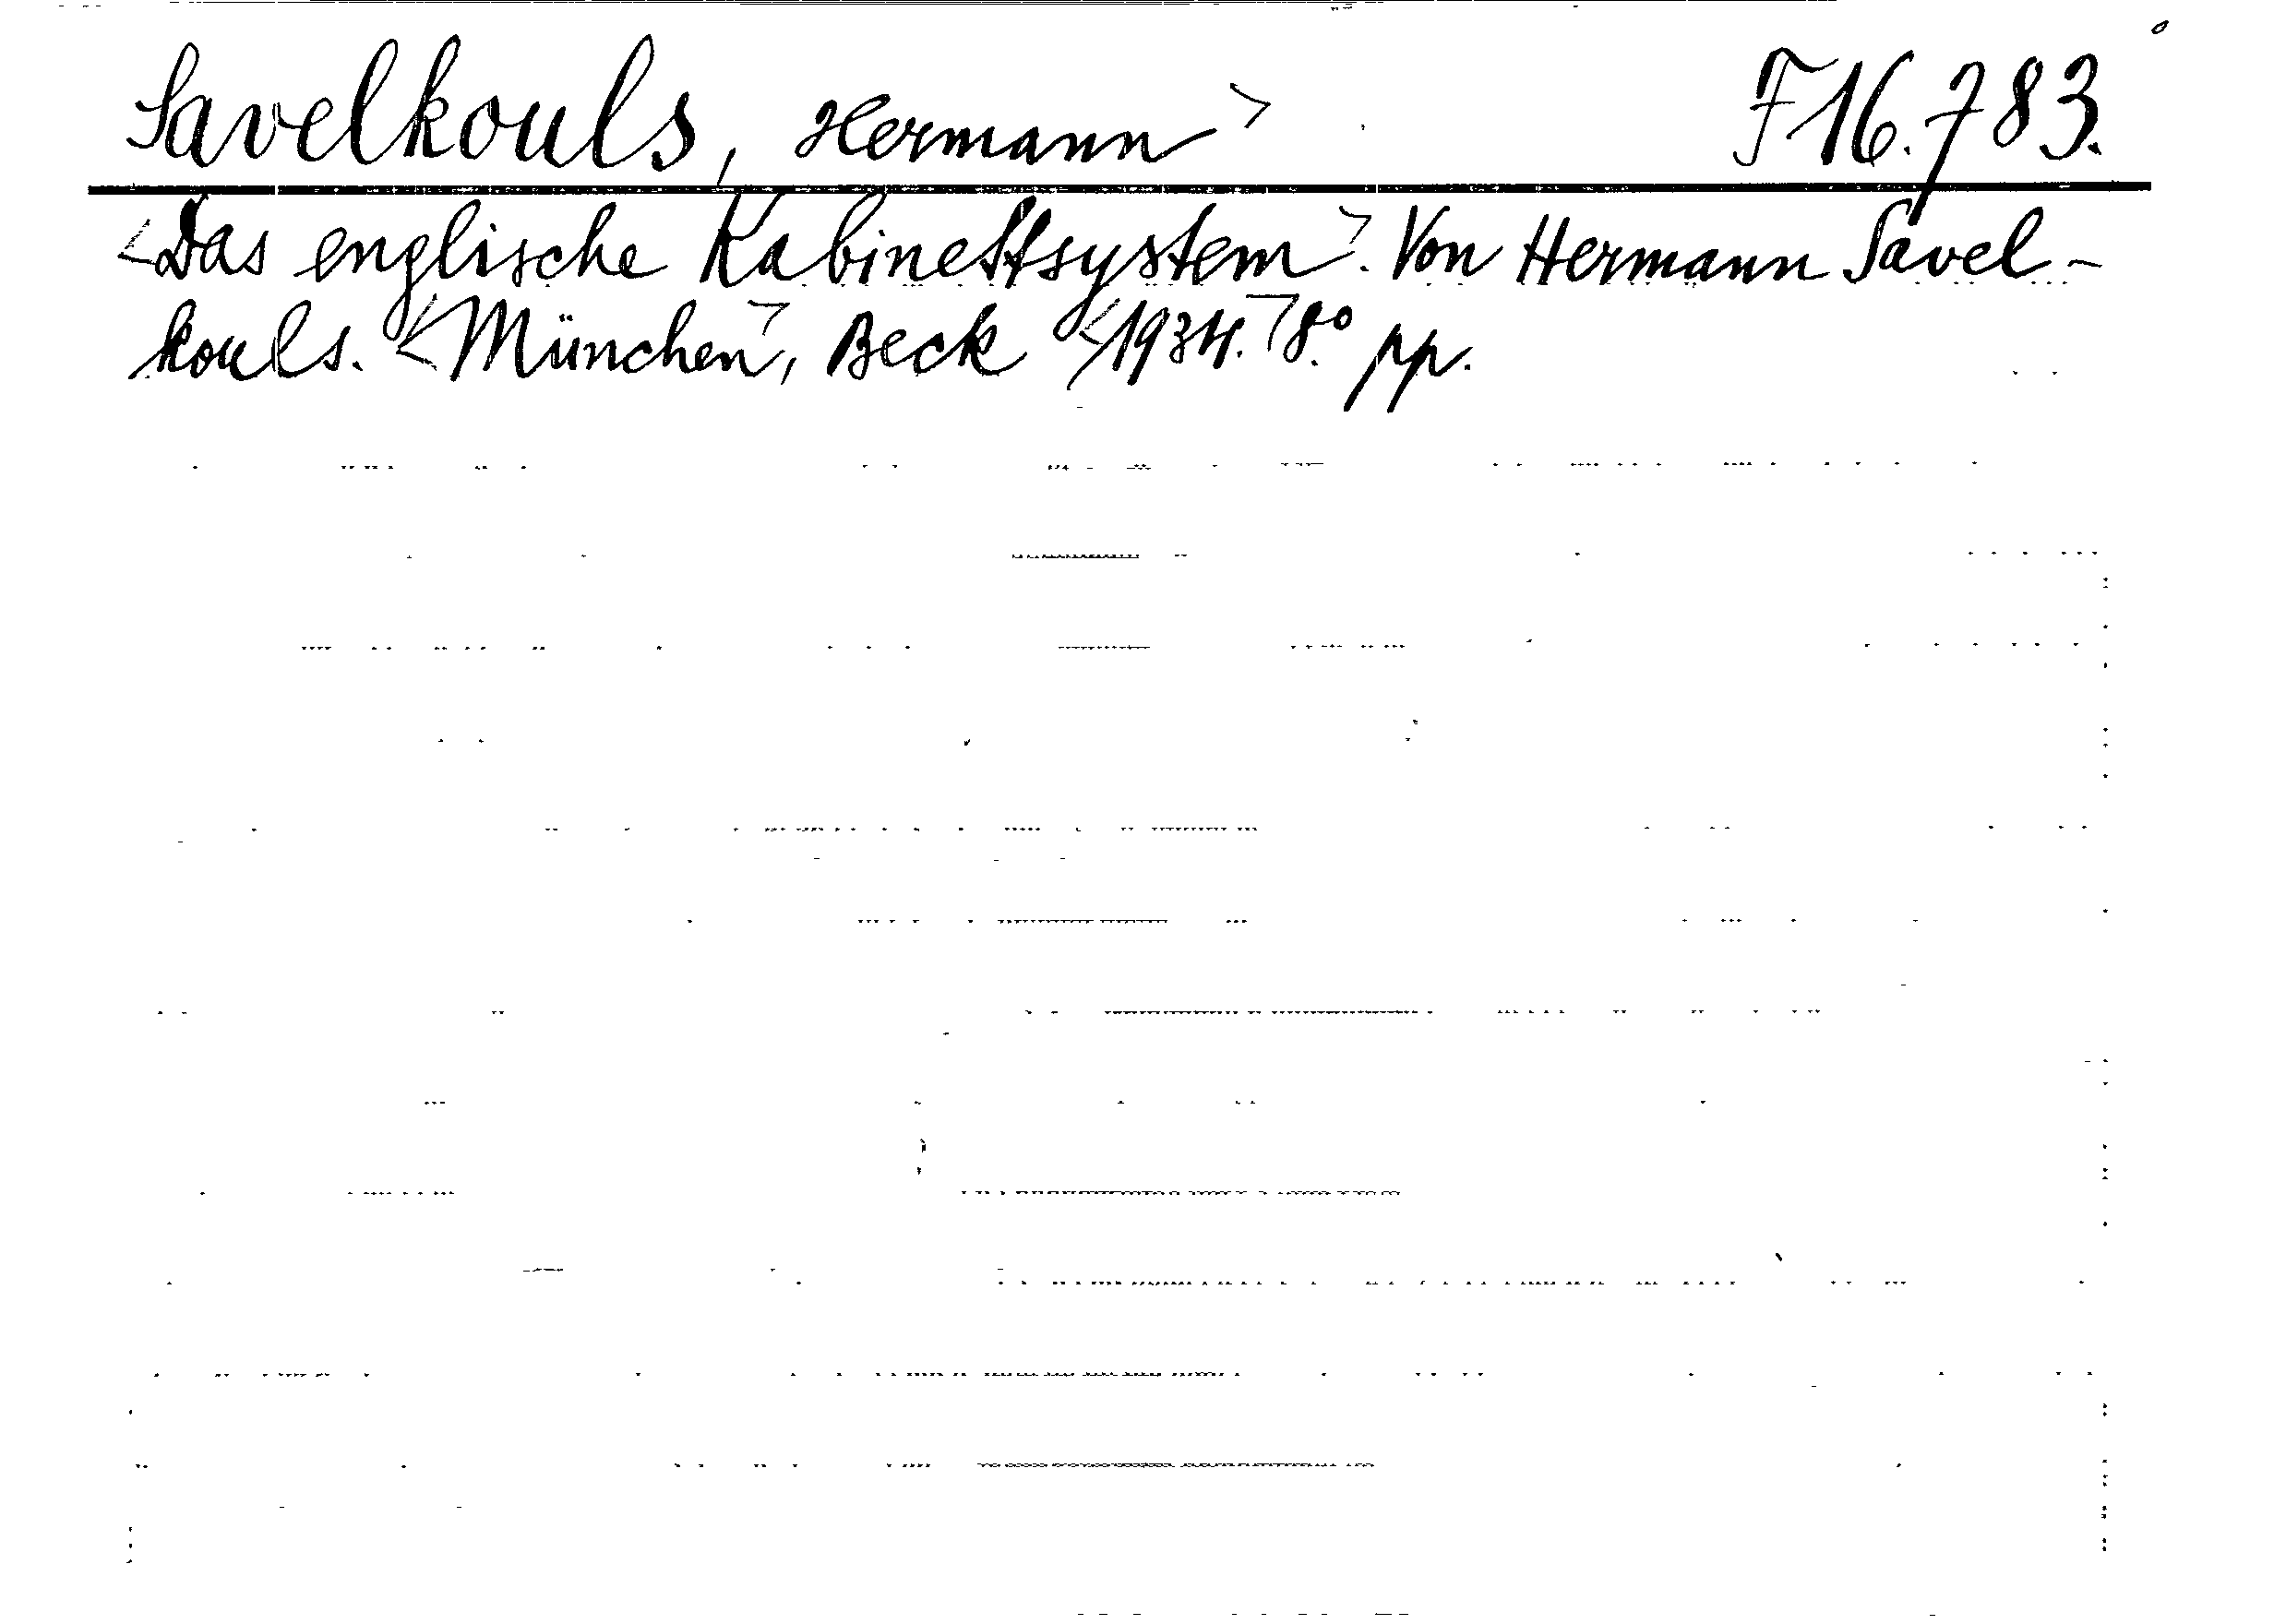 Savelkouls, Hermann> F 16.783.
<Das englische Kabinettsystem>. Von Hermann Savel-
kouls. <München>, Beck <1934.> 8.° pp.